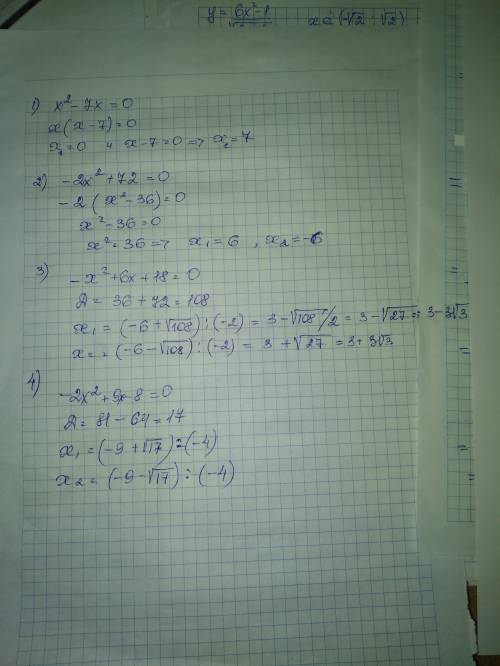 y = 6x²-1 x ∈ (-√2 √2)
1) x² - 7x = 0
x(x-7) = 0
x₁ = 0 и x-7=0 => x₂ = 7
2) -2x² + 72 = 0
-2(x²-36) = 0
x² - 36 = 0
x² = 36 => x₁ = 6 , x₂ = -6
3) -x² + 6x + 18 = 0
D = 36 + 72 = 108
x₁ = (-6 + √108) : (-2) = 3 - √108/2 = 3 - √27 = 3 - 3√3
x = (-6 - √108) : (-2) = 3 + √27 = 3 + 3√3
4) -2x² + 9x - 8 = 0
D = 81 - 64 = 17
x₁ = (-9 + √17) : (-4)
x₂ = (-9 - √17) : (-4)